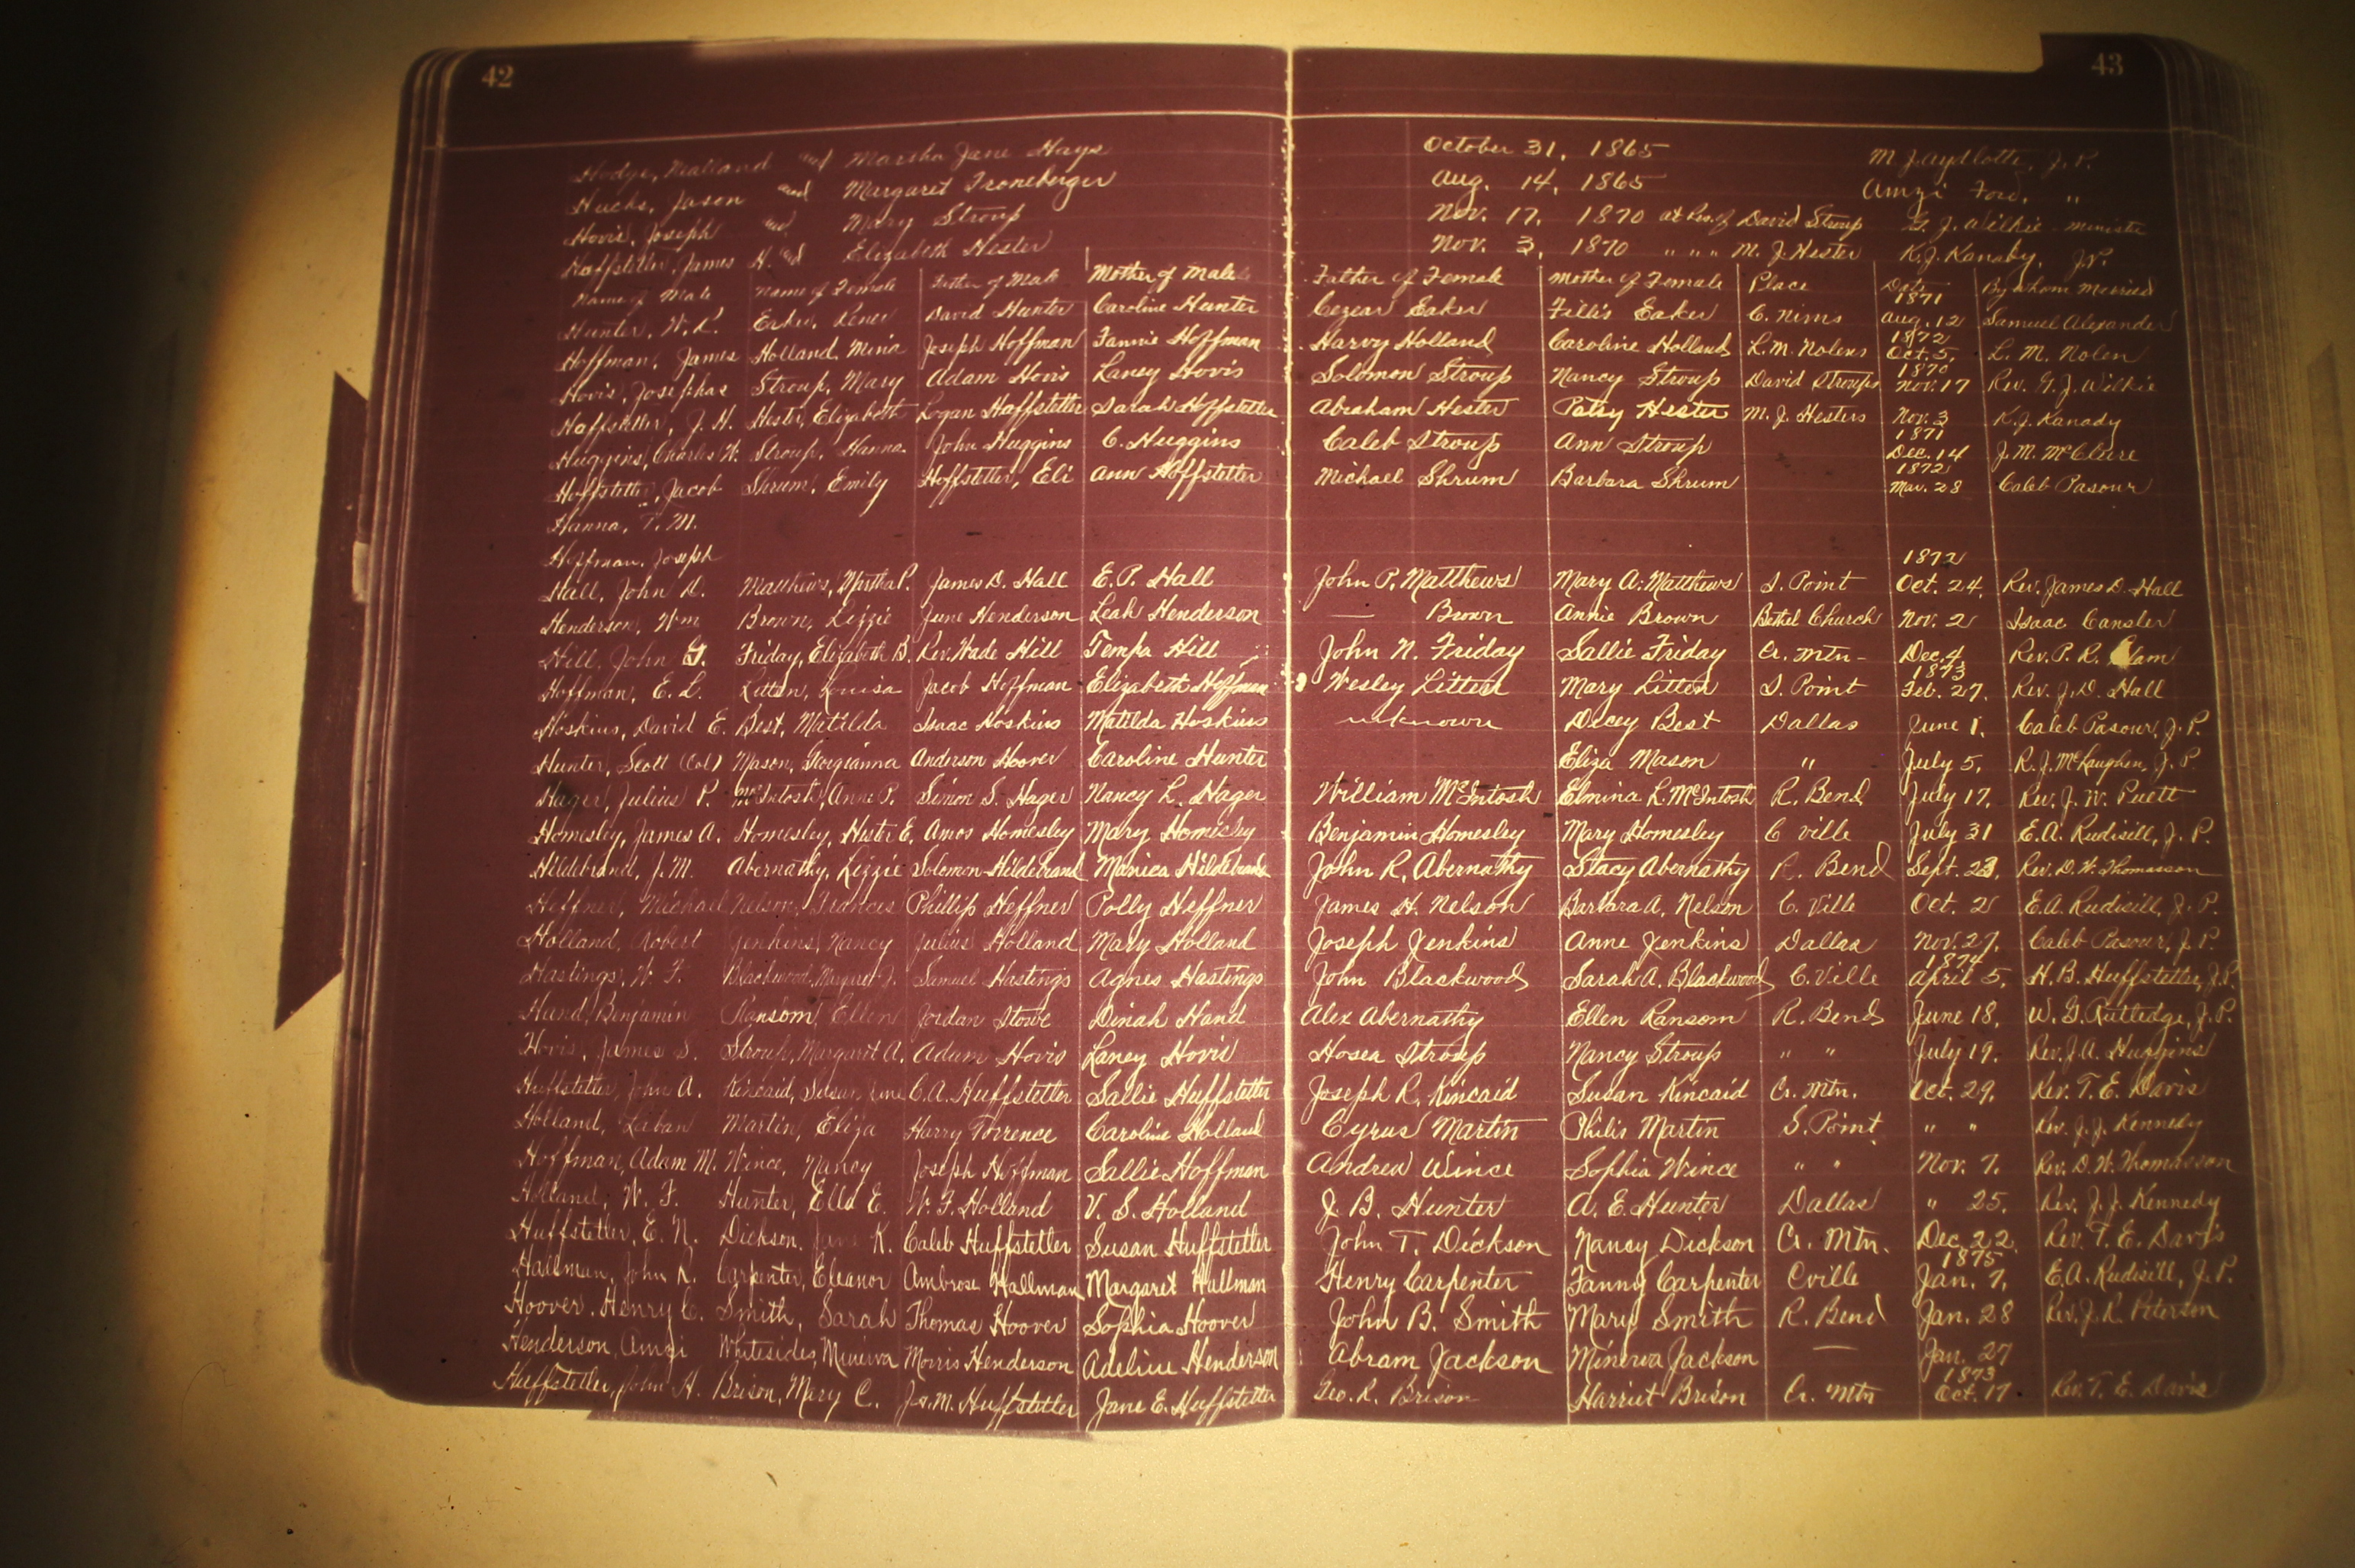 42 43
Hodge, and Martha Jane Hays October 31, 1865 M. J. Aydlotte, J. P.
Huchs, Jason and Margaret Froneberger Aug. 14, 1865 Amzi Ford, "
Hovis, Joseph and Mary Stroup Nov. 17, 1870 at Res. of David Stroup G. J. Wilkie - Ministe
Haffstetler, James H. and Elizabeth Hester Nov. 3, 1870 " " " M. J. Hester K. J. Kanady, J.P.
Name of Male Name of Female Father of Male Mother of Male Father of Female Mother of Female Place Date By Whom Married
Hunter, W. R. Eaker, Renee David Hunter Caroline Hunter Cezear Eaker Fillis Eaker C. Nims 1871 Aug. 12 Samuel Alexander
Hoffman, James Holland, Mina Joseph Hoffman Fannie Hoffman Harvy Holland Caroline Holland L. M. Nolens 1872 Oct. 5, L. M. Nolen
Hovis, Josephas Stroup, Mary Adam Hovis Laney Hovis Solomon Stroup Nancy Stroup David Stroups 1870 Nov. 17 Rev. G. J. Wilkie
Haffstetler, J. H. Hester, Elizabeth Logan Haffstetler Sarah Hoffstetler Abraham Hester Patsy Hester M. J. Hesters Nov. 3 K. J. Kanady
Huggins, Charles W. Stroup, Hanna. John Huggins C. Huggins Caleb Stroup Ann Stroup 1871 Dec. 14 J. M. McClure
Hoffstetler, Jacob Shrum, Emily Hoffstetler, Eli Ann Hoffstetler Michael Shrum Barbara Shrum 1872 Mar. 28 Caleb Pasour
Hanna, T. M.
Hoffman, Joseph
Hall, John D. Matthews, Martha P. James D. Hall E. P. Hall John P. Matthews Mary A. Matthews S. Point 1872 Oct. 24, Rev. James D. Hall
Henderson, Wm Brown, Lizzie June Henderson Leah Henderson — Brown Annie Brown Bethel Church Nov. 2 Isaac Cansler
Hill, John G. Friday, Elizabeth B. Rev. Wade Hill Tempa Hill John N. Friday Sallie Friday Cr. Mtn - Dec. 4 Rev. P. R.
Hoffman, E. L. Litten, Louisa Jacob Hoffman Elizabeth Hoffman Wesley Litten Mary Litten S. Point 1873 Feb. 27, Rev. J. D. Hall
Hoskins, David E. Best, Matilda Isaac Hoskins Matilda Hoskins unknown Dicey Best Dallas June 1. Caleb Pasour, J. P.
Hunter, Scott (Col) Mason, Gorgianna Anderson Hoover Caroline Hunter Eliza Mason " July 5, R. J. McLaughen, J. P.
Hager, Julius P. McIntosh, Ann P. Simon S. Hager Nancy L. Hager William McIntosh Elmina R. McIntosh R. Bend July 17, Rev. J. W. Puett
Homesley, James A. Homesley, Hester E. Amos Homesley Mary Homesley Benjamin Homesley Mary Homesley C ville July 31 E. A. Rudisill, J. P.
Hildebrand, J. M. Abernathy, Lizzie Solomon Hildebrand Monica Hildebrand John R. Abernathy Stacy Abernathy R. Bend Sept. 23, Rev. D. W. Thomasson
Heffner, Michael Nelson, Frances Phillip Heffner Polly Heffner James H. Nelson Barbara A. Nelson C. Ville Oct. 2 E. A. Rudisill, J. P.
Holland, Robert Jenkins, Nancy Julius Holland Mary Holland Joseph Jenkins Anne Jenkins Dallas Nov. 27, Caleb Pasour, J. P.
Hastings, W. F. Blackwood, Margaret J. Samuel Hastings Agnes Hastings John Blackwood Sarah A. Blackwood C. Ville 1874 April 5, H. B. Huffstetler, J. P.
Hand, Benjamin Ransom, Ellen Jordan Stowe Dinah Hand Alex Abernathy Ellen Ransom R. Bend June 18, W. G. Rutledge, J. P.
Hovis, James S. Stroup, Margaret A. Adam Hovis Laney Hovis Hosea Stroup Nancy Stroup " " July 19. Rev. J. A. Huggins
Huffstetler, John A. Kincaid, Susan C. A. Huffstetler Sallie Huffstetler Joseph R. Kincaid Susan Kincaid Cr. Mtn. Oct. 29, Rev. T. E. Davis
Holland, Laban Martin, Eliza Harry Torrence Caroline Holland Cyrus Martin Philis Martin S. Point " " Rev. J. J. Kennedy
Hoffman, Adam M. Wince, Nancy Joseph Hoffman Sallie Hoffman Andrew Wince Sophia Wince " " Nov. 7. Rev. D. W. Thomasson
Holland, W. F. Hunter, Ella E. W. F. Holland V. S. Holland J. B. Hunter A. E. Hunter Dallas " 25. Rev. J. J. Kennedy
Huffstetler, E. N. Dickson, Jane K. Caleb Huffstetler Susan Huffstetler John T. Dickson Nancy Dickson Cr. Mtn. Dec. 22, Rev. T. E. Davis
Hallman, John R. Carpenter, Eleanor Ambrose Hallman Margaret Hallman Henry Carpenter Fanny Carpenter Cville 1875 Jan. 7, E. A. Rudisill, J. P.
Hoover, Henry C. Smith, Sarah Thomas Hoover Sophia Hoover John B. Smith Mary Smith R. Bend Jan. 28 Rev. J. R. Peterson
Henderson, Amzi Whitesides, Minerva Morris Henderson Adeline Henderson Abram Jackson Minerva Jackson — Jan. 27
Huffstetler, John H. Brison, Mary C. Ja. M. Huffstetler Jane E. Huffstetler Geo. R. Brison Harriet Brison Cr. Mtn 1873 Oct. 17 Rev. T. E. Davis